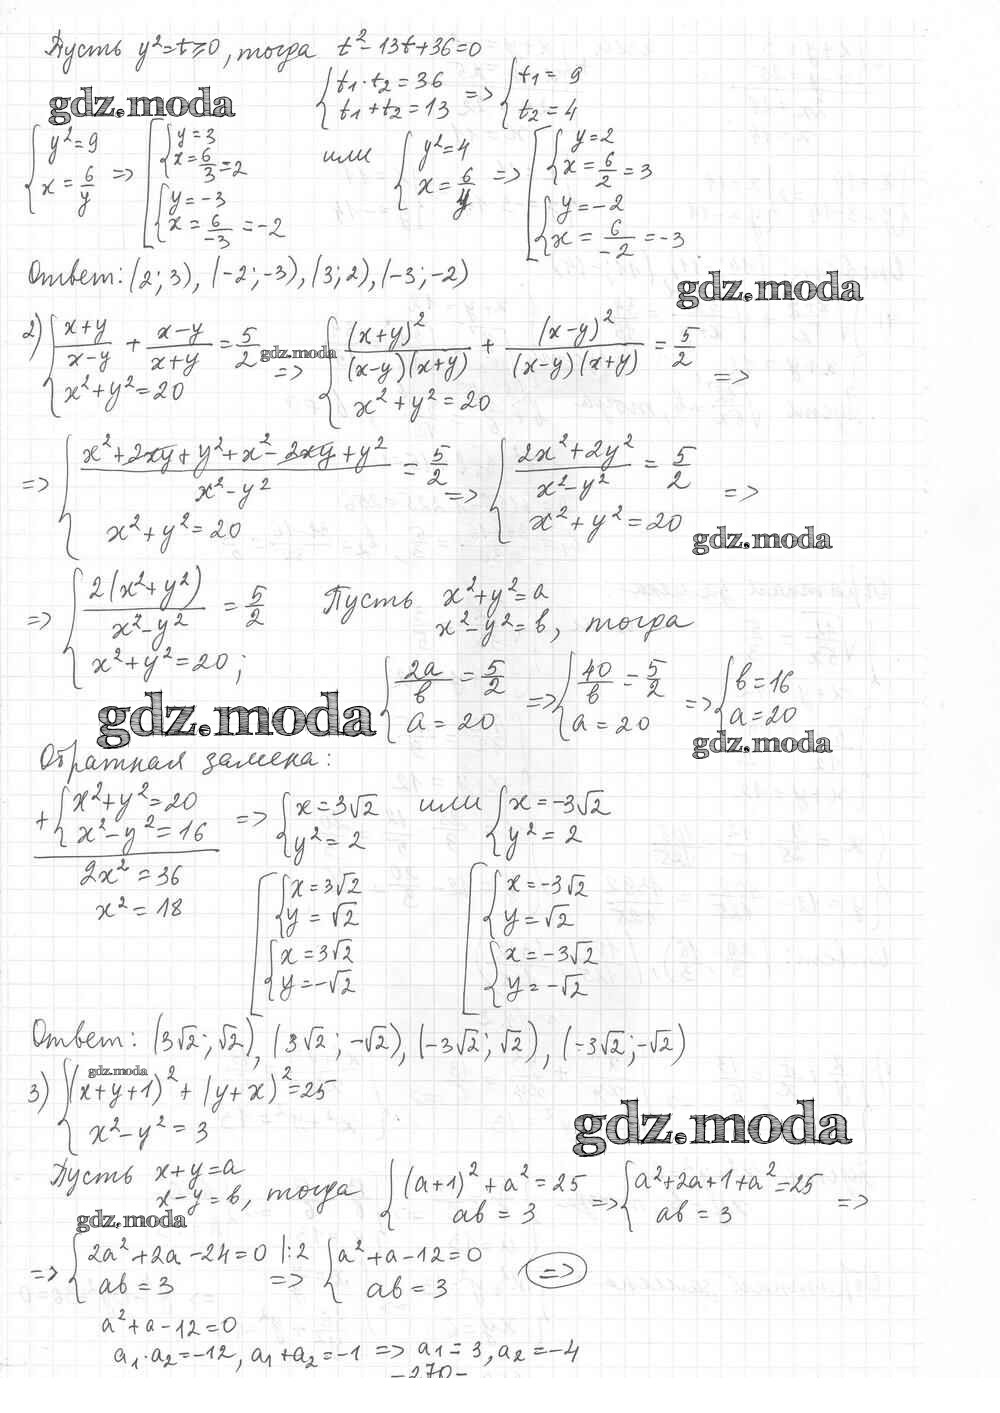 Пусть y²=t≥0, тогда t²-13t+36=0
{t₁·t₂=36
{t₁+t₂=13 => {t₁=9
{t₂=4
gdz.moda
{y²=9
{x=6/y => [{y=3
{x=6/3=2
{y=-3
{x=6/-3=-2
или {y²=4
{x=6/y => [{y=2
{x=6/2=3
{y=-2
{x=6/-2=-3
Ответ: (2;3), (-2;-3), (3;2), (-3;-2)
gdz.moda
2) {(x+y)/(x-y) + (x-y)/(x+y) = 5/2
{x²+y²=20
gdz.moda
=> {(x+y)²/(x-y)(x+y) + (x-y)²/(x-y)(x+y) = 5/2
{x²+y²=20 =>
=> {(x²+2xy+y²+x²-2xy+y²)/(x²-y²) = 5/2
{x²+y²=20
=> {(2x²+2y²)/(x²-y²) = 5/2
{x²+y²=20 =>
gdz.moda
=> {2(x²+y²)/(x²-y²) = 5/2
{x²+y²=20;
Пусть x²+y²=a
x²-y²=b, тогда
{2a/b = 5/2
{a=20 => {40/b = 5/2
{a=20 => {b=16
{a=20
gdz.moda
gdz.moda
Обратная замена:
+{x²+y²=20
{x²-y²=16
2x²=36
x²=18
=> {x=3√2
{y²=2
или {x=-3√2
{y²=2
[{x=3√2
{y=√2
{x=3√2
{y=-√2
[{x=-3√2
{y=√2
{x=-3√2
{y=-√2
Ответ: (3√2;√2), (3√2;-√2), (-3√2;√2), (-3√2;-√2)
gdz.moda
3) {(x+y+1)²+(y+x)²=25
{x²-y²=3
gdz.moda
Пусть x+y=a
x-y=b, тогда
{(a+1)²+a²=25
{ab=3 => {a²+2a+1+a²=25
{ab=3 =>
gdz.moda
=> {2a²+2a-24=0 |:2
{ab=3 => {a²+a-12=0
{ab=3 =>
a²+a-12=0
a₁·a₂=-12, a₁+a₂=-1 => a₁=3, a₂=-4
-270-